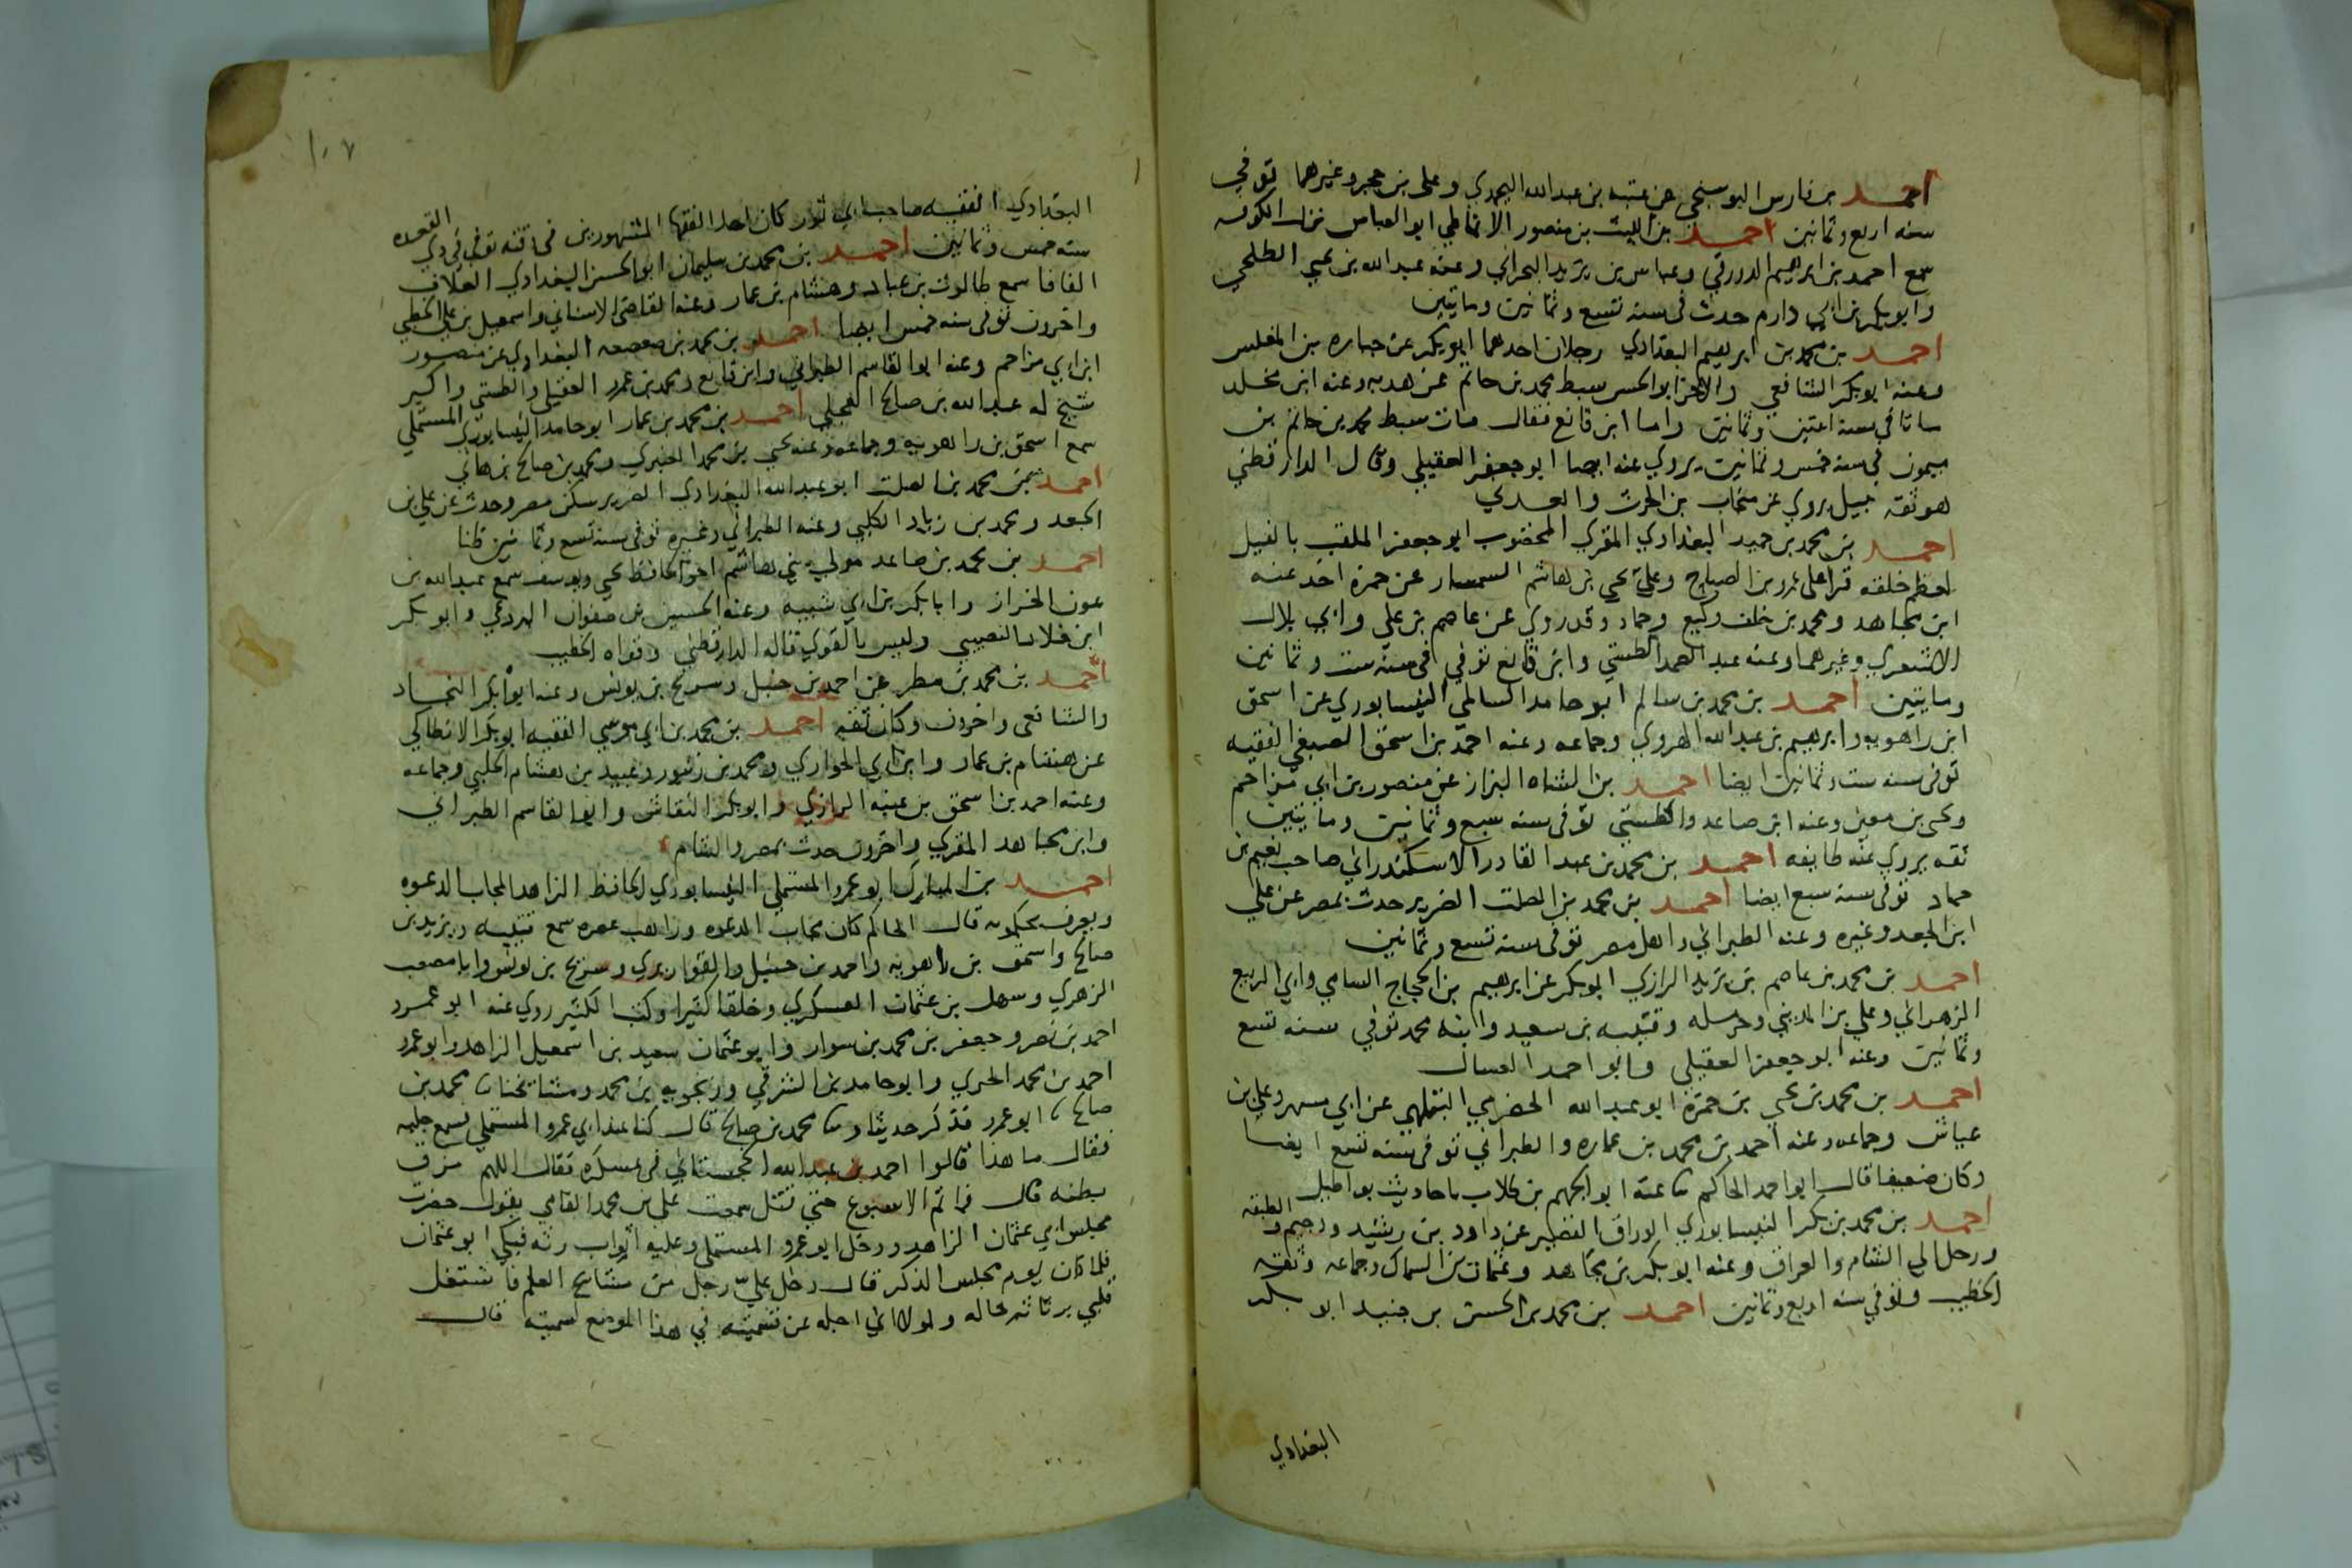 احمد بن فارس البوسنجي عن عتبه بن عبدالله اليحمدي وعلى بن حجر وغيرهما توفي
سنه اربع وثمانين احمد بن الليث بن منصور الانماطي ابو العباس نزل الكوفه
سمع احمد بن ابرهيم الدورقي وعباس بن يزيد البحراني وعنه عبدالله بن يحيي الطلحي
وابوبكر بن ابي دارم حدث في سنه تسع وثمانين وماتين
احمد بن محمد بن ابرهيم البغدادي رجلان احدهما ابوبكر عن جباره بن المغلس
وعنه ابوبكر الشافعي والاخر ابو الحسن سبط محمد بن حاتم عن هدبه وعنه ابن مخلد
ماتا في سنه اثنتين وثمانين واما ابن قانع فقال مات سبط محمد بن حاتم بن
ميمون في سنه خمس وثمانين يروي عنه ايضا ابو جعفر العقيلي وقال الدارقطني
هو ثقه نبيل يروي عن منجاب بن الحرث والعدي
احمد بن محمد بن حميد البغدادي المقري المخضوب ابو جعفر الملقب بالفيل
لعظم خلقه قرا على عمرو بن الصباح وعلى يحيي بن هاشم السمسار عن حمزه اخذ عنه
ابن مجاهد ومحمد بن خلف وكيع وحماد وقد روي عن عاصم بن علي وابي بلال
الاشعري وغيرهما وعنه عبد الصمد الطستي وابن قانع توفي في سنه ست وثمانين
وماتين احمد بن محمد بن سالم ابو حامد السالمي النيسابوري عن اسحق
ابن راهويه وابرهيم بن عبدالله الهروي وجماعه وعنه احمد بن اسحق الصبغي الفقيه
توفي سنه ست وثمانين ايضا احمد بن الشاه البزاز عن منصور بن ابي مزاحم
ويحيى بن معين وعنه ابن صاعد والطستي توفي سنه سبع وثمانين وماتين
ثقه يروي عنه طايفه احمد بن محمد بن عبد القادر الاسكندراني صاحب نعيم بن
حماد توفي سنه سبع ايضا احمد بن محمد بن الصلت الضرير حدث بمصر عن علي
ابن الجعد وغيره وعنه الطبراني واهل مصر توفي سنه تسع وثمانين
احمد بن محمد بن عاصم بن يزيد الرازي ابوبكر عن ابرهيم بن الحجاج السامي وابي الربيع
الزهراني وعلي بن المديني وحرمله وقتيبه بن سعيد وابنه محمد توفي سنه تسع
وثمانين وعنه ابو جعفر العقيلي وابو احمد العسال
احمد بن محمد بن يحيي بن حمزه ابو عبدالله الحضرمي البتلهي عن ابي مسهر وعلي بن
عياش وجماعه وعنه احمد بن محمد بن عماره والطبراني توفي سنه تسع ايضا
وكان ضعيفا قال ابو احمد الحاكم ثنا عنه ابو الجهم بن كلاب باحاديث بواطيل
احمد بن محمد بن بكر النيسابوري الوراق القصير عن داود بن رشيد ودحيم و الطبقه
ورحل الي الشام والعراق وعنه ابوبكر بن مجاهد وعثمان بن السماك وجماعه وثقه
الخطيب وتوفي سنه اربع وثمانين احمد بن محمد بن الحسن بن جنيد ابو بكر
البغدادي
١٠٧
البغدادي الفقيه صاحب ابي ثور كان احد الفقها المشهورين توفي في ذي القعده
سنه خمس وثمانين احمد بن محمد بن سليمان ابو الحسن البغدادي العلاف
الفافا سمع طالوت بن عباد وهشام بن عمار وعنه القاضي الاسناني واسمعيل بن علي الخطبي
واخرون توفي سنه خمس ايضا احمد بن محمد بن صعصعه البغدادي عن منصور
ابن ابي مزاحم وعنه ابو القاسم الطبراني وابن قانع ومحمد بن عمرو العقيلي والطستي واكبر
شيخ له عبدالله بن صالح العجلي احمد بن محمد بن عمار ابو حامد النيسابوري المستملي
سمع اسحق بن راهويه وجماعه وعنه يحيي بن محمد العنبري ومحمد بن صالح بن هاني
احمد بن محمد بن الصلت ابو عبدالله البغدادي الضرير سكن مصر وحدث عن علي بن
الجعد ومحمد بن زياد الكلبي وعنه الطبراني وغيره توفي سنه تسع وثمانين ظنا
احمد بن محمد بن صاعد مولي بني هاشم اخو الحافظ يحيي ويوسف سمع عبدالله بن
عون الخراز وابا بكر بن ابي شيبه وعنه الحسين بن صفوان البردعي وابو بكر
ابن فلاد النصيبي وليس بالقوي قاله الدارقطني وقواه الخطيب
احمد بن محمد بن مطر عن احمد بن حنبل وسريج بن يونس وعنه ابوبكر النجاد
والشافعي واخرون وكان ثقه احمد بن محمد بن ابي موسي الفقيه ابوبكر الانطاكي
عن هشام بن عمار وابن ابي الحواري ومحمد بن زنبور وعبيد بن هشام الحلبي وجماعه
وعنه احمد بن اسحق بن عتبه الرازي وابوبكر النقاش وابو القاسم الطبراني
وابن مجاهد المقري واخرون حدث بمصر والشام
احمد بن المبارك ابو عمرو المستملي النيسابوري الحافظ الزاهد المجاب الدعوه
ويعرف بحكمويه قال الحاكم كان مجاب الدعوه وراهب عصره سمع قتيبه ويزيد بن
صالح واسحق بن راهويه واحمد بن حنبل والقواريري وسريج بن يونس وابا مصعب
الزهري وسهل بن عثمان العسكري وخلقا كثيرا وكتب الكثير روي عنه ابو عمرو
احمد بن نصر وجعفر بن محمد بن سوار وابو عثمان سعيد بن اسمعيل الزاهد وابو عمرو
احمد بن محمد الحيري وابو حامد بن الشرقي وزنجويه بن محمد ومشايخنا ثنا محمد بن
صالح ثنا ابو عمرو فذكر حديثا وثنا محمد بن صالح قال كنا عند ابي عمرو المستملي فسمع جلبه
فقال ما هذا قالوا احمد بن عبدالله الخجستاني في عسكره فقال اللهم مزق
بطنه قال فما تم الاسبوع حتي قتل سمعت علي بن محمد القامي يقول حضرت
مجلس ابي عثمان الزاهد ودخل ابو عمرو المستملي وعليه اثواب رثه فبكي ابو عثمان
فلما كان يوم مجلس الذكر قال دخل علي رجل من مشايخ العلم فاشتغل
قلبي برثاثه حاله ولولا اني اجله عن تسميته في هذا الموضع لسميته قال